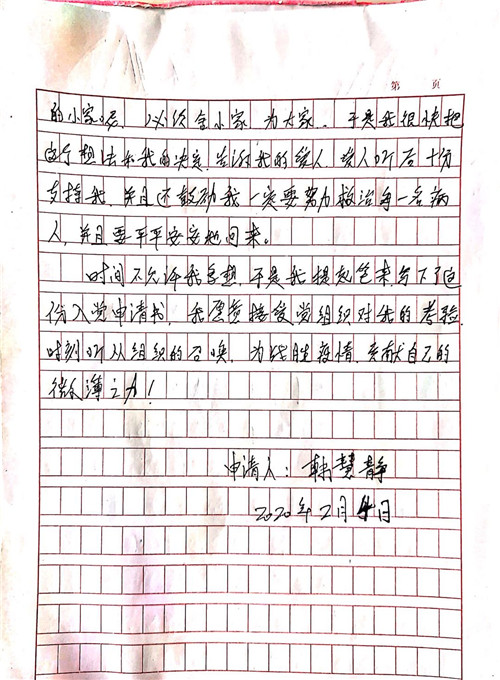 第 页
的小家呢，必须舍小家为大家，于是我很快把
这个想法和我的决定，告诉我的爱人，爱人听后十分
支持我，并且还鼓励我一定要努力救治每一名病
人，并且要平平安安地回来。
时间不允许我多想，于是我提起笔来写下了这
份入党申请书，我愿意接受党组织对我的考验，
时刻听从组织的召唤，为战胜疫情，贡献自己的
微薄之力！
申请人：韩慧静
2020年2月4日